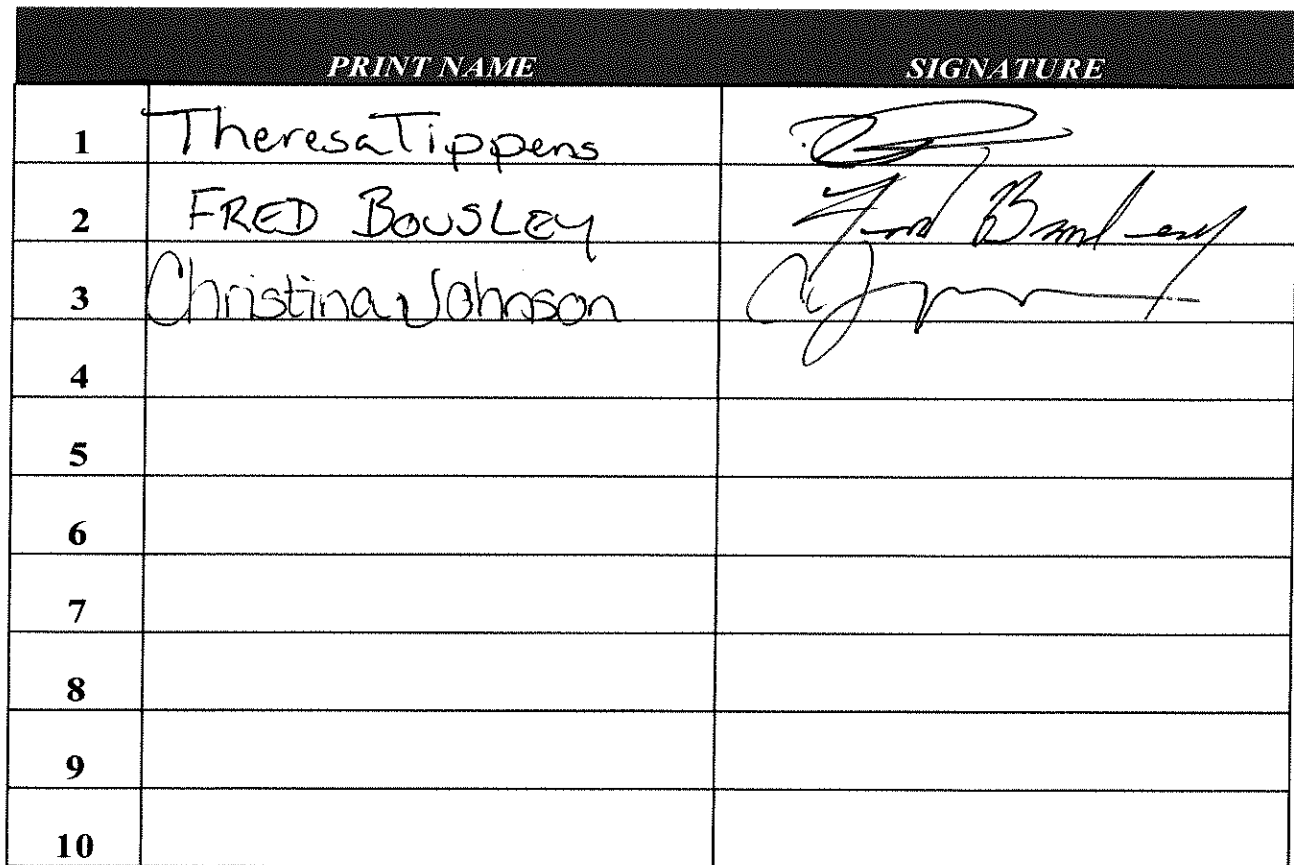 PRINT NAME SIGNATURE
1 Theresa Tippens
2 FRED BOUSLEY Fred Bousley
3 Christina Johnson
4
5
6
7
8
9
10